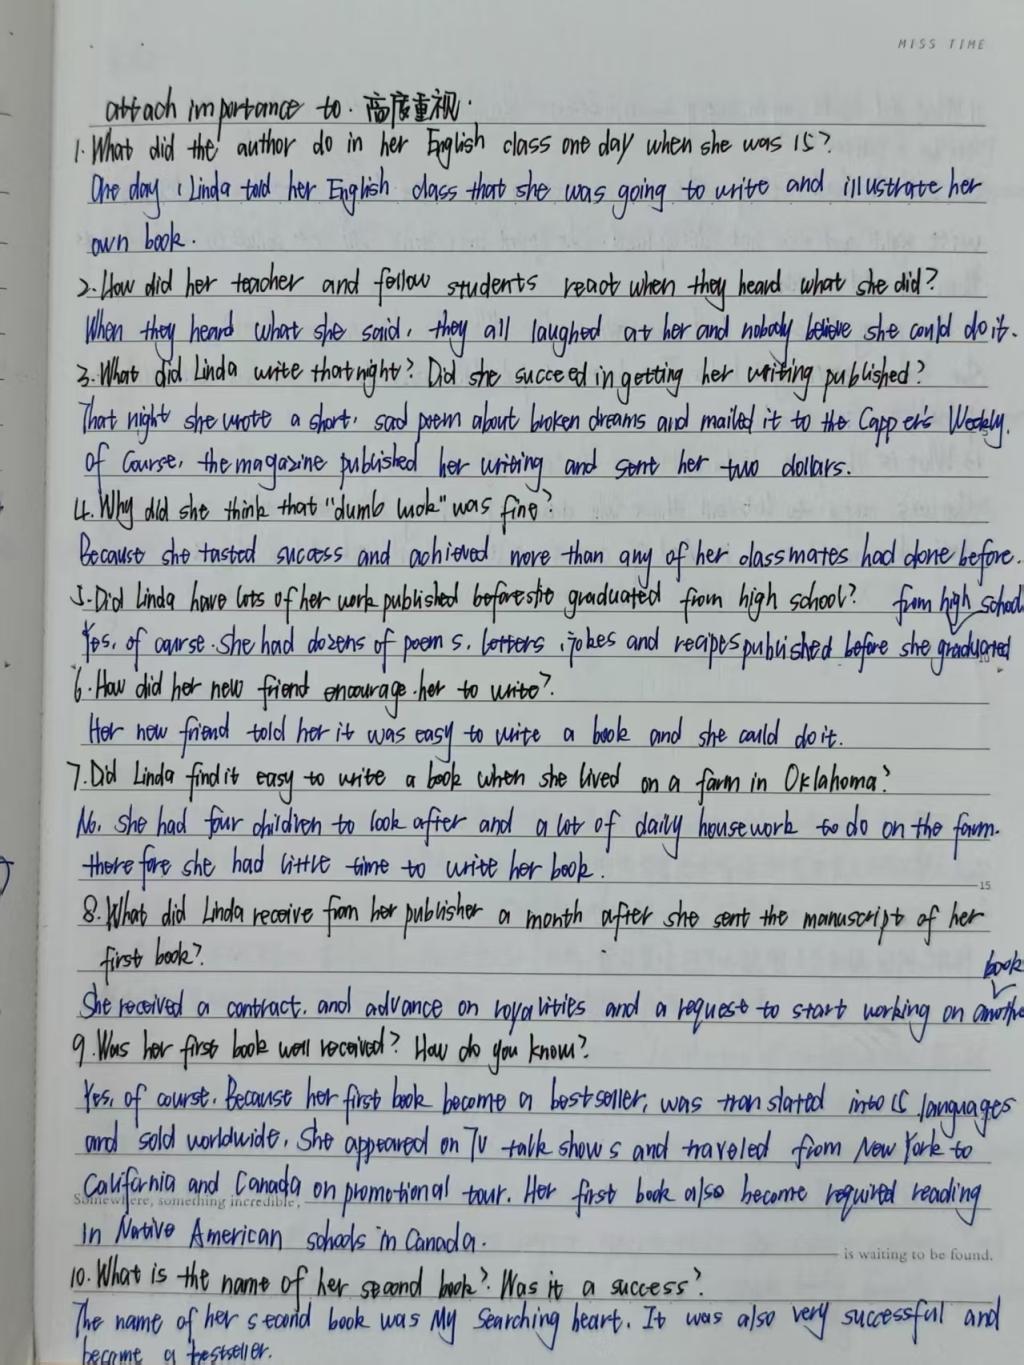 MISS TIME
attach importance to. 高度重视.
1. What did the author do in her English class one day when she was 15?
One day, Linda told her English class that she was going to write and illustrate her
own book.
2. How did her teacher and follow students react when they heard what she did?
When they heard what she said, they all laughed at her and nobody believe she could do it.
3. What did Linda write that night? Did she succeed in getting her writing published?
That night she wrote a short, sad poem about broken dreams and mailed it to the Capper's Weekly.
Of course, the magazine published her writing and sent her two dollars.
4. Why did she think that "dumb luck" was fine?
Because she tasted success and achieved more than any of her classmates had done before.
5. Did Linda have lots of her work published before she graduated from high school? from high school
Yes, of course. She had dozens of poems, letters, jokes and recipes published before she graduated
6. How did her new friend encourage her to write?
Her new friend told her it was easy to write a book and she could do it.
7. Did Linda find it easy to write a book when she lived on a farm in Oklahoma?
No, she had four children to look after and a lot of daily housework to do on the farm.
therefore she had little time to write her book.
15
8. What did Linda receive from her publisher a month after she sent the manuscript of her
first book?
book
She received a contract, and advance on royalities and a request to start working on another
9. Was her first book well received? How do you know?
Yes, of course. Because her first book become a bestseller, was translated into 15 languages
and sold worldwide. She appeared on TV talk shows and traveled from New York to
California and Canada on promotional tour. Her first book also become required reading
Somewhere, something incredible,
in Native American schools in Canada.
is waiting to be found.
10. What is the name of her second book? Was it a success?
The name of her second book was My Searching heart. It was also very successful and
become a bestseller.